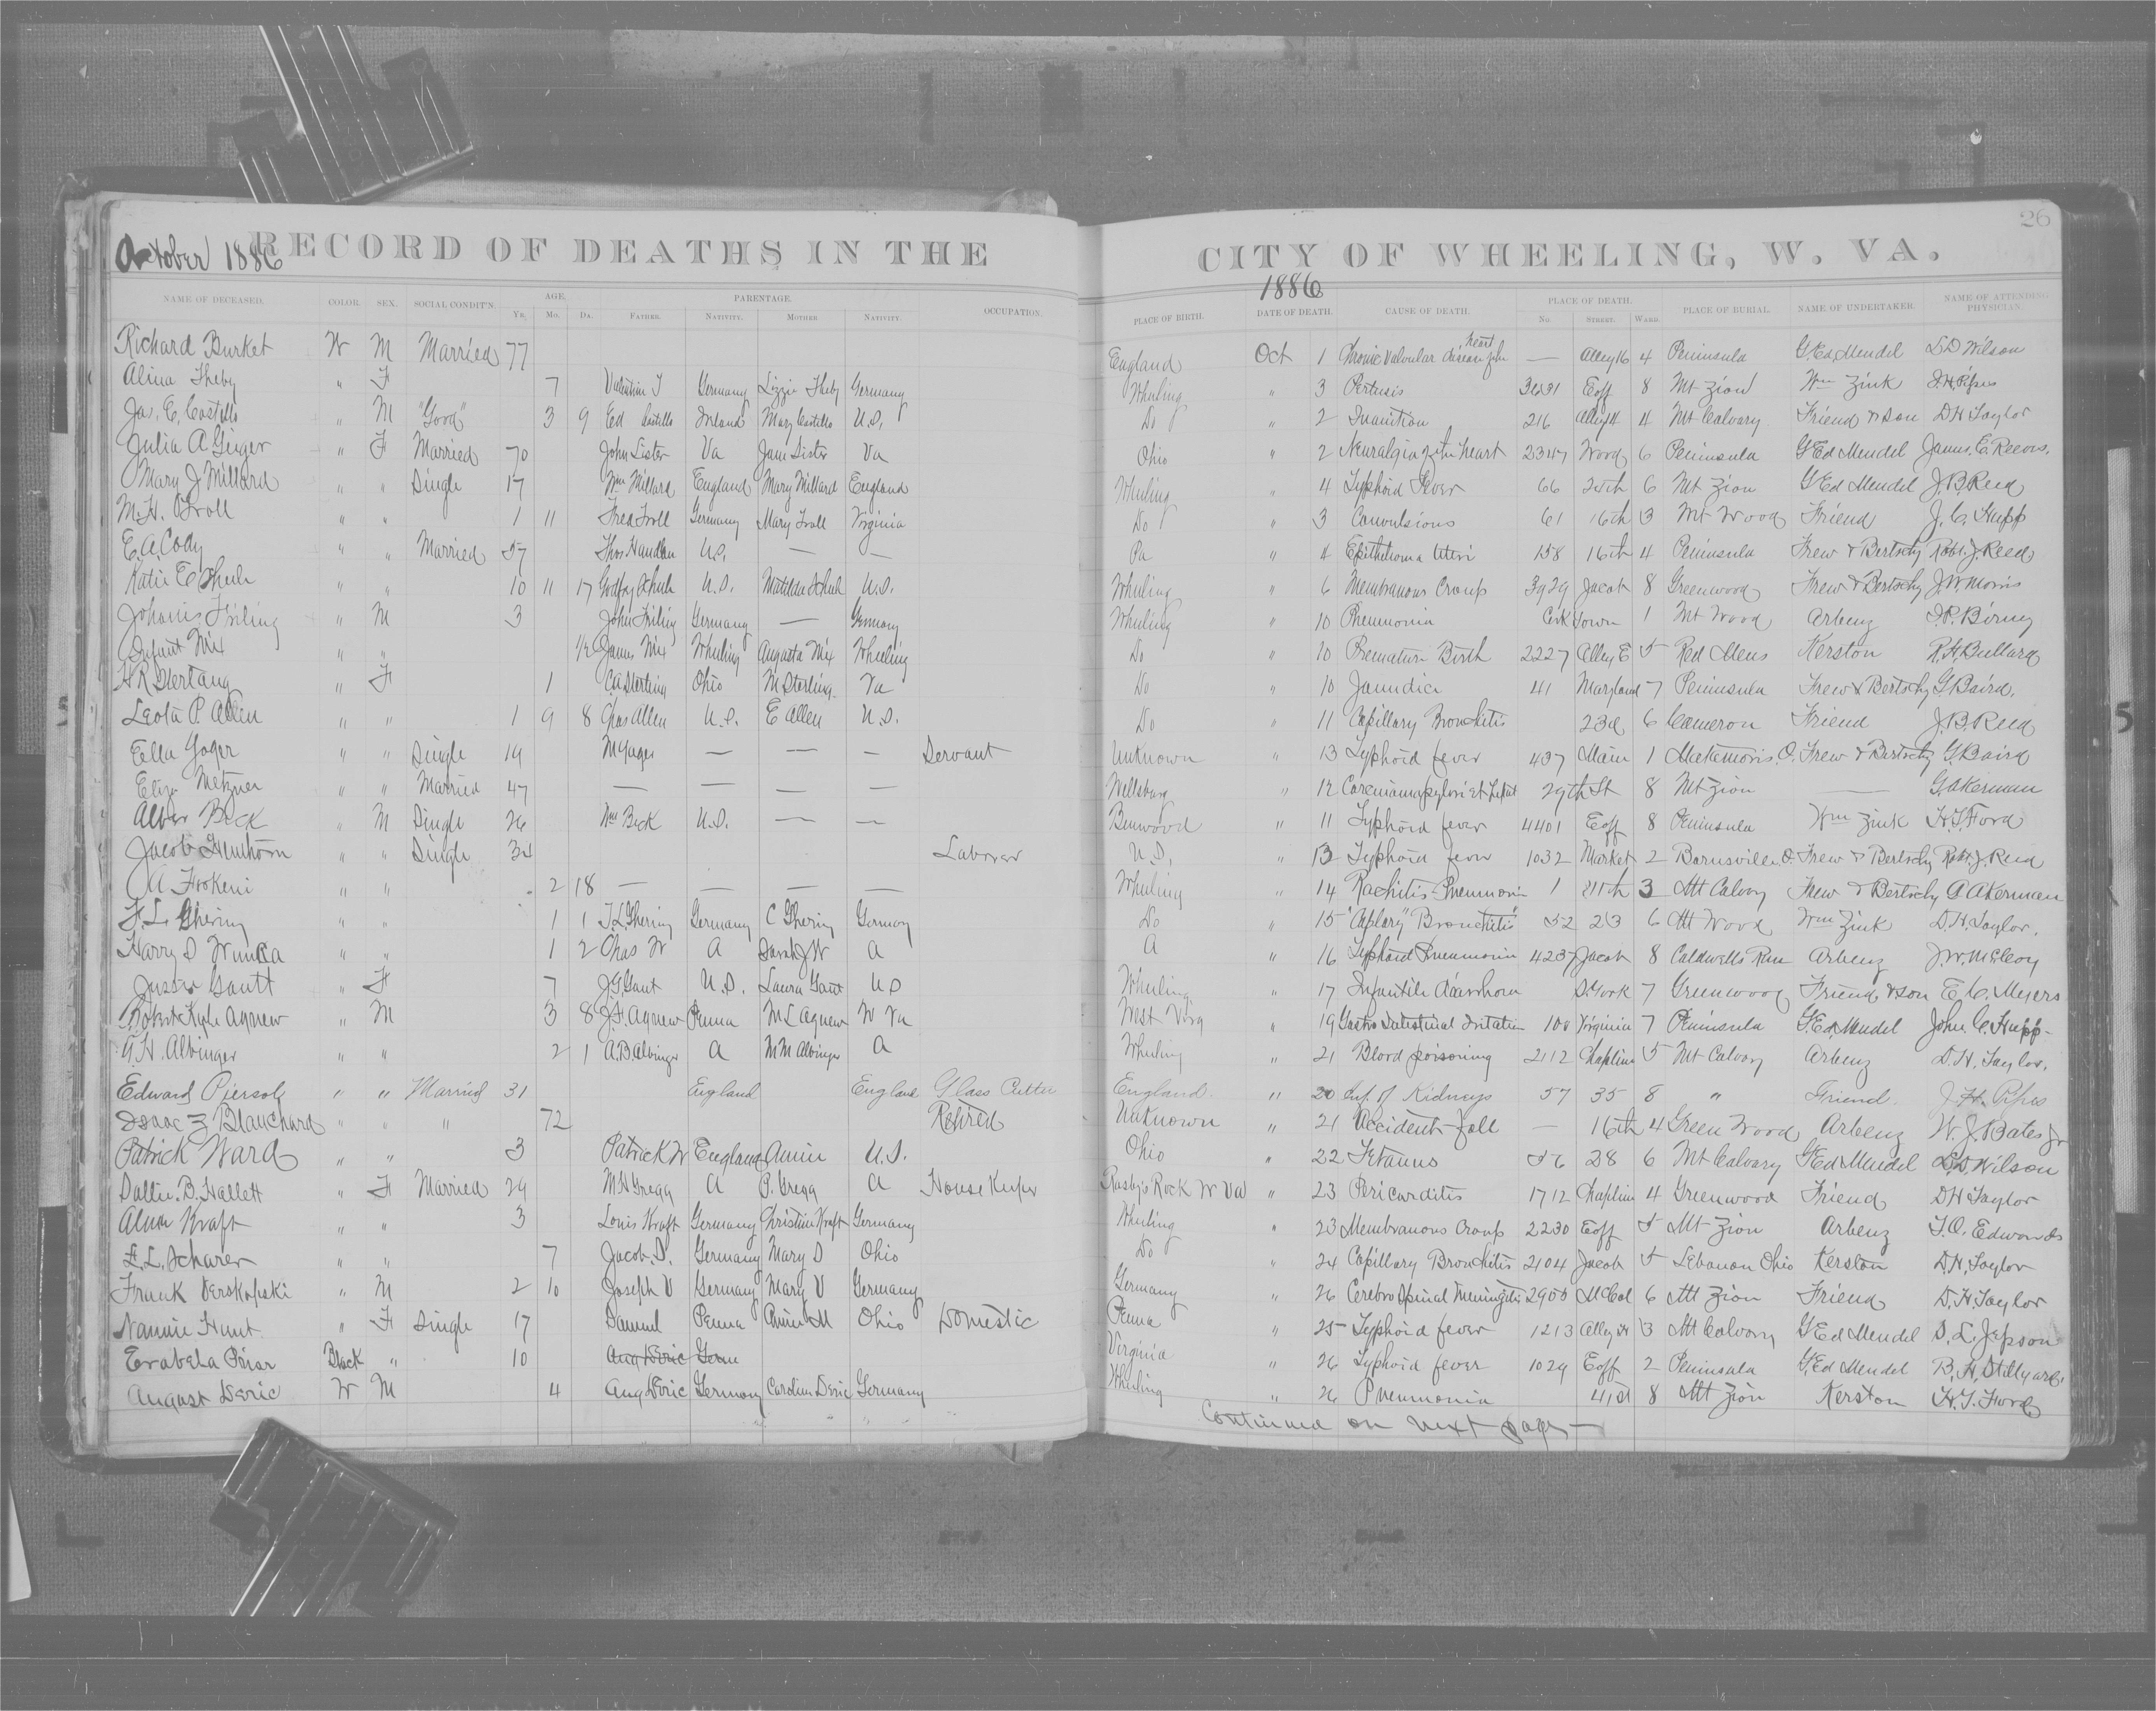 26
October 1886 RECORD OF DEATHS IN THE CITY OF WHEELING, W. VA.
1886
NAME OF DECEASED. COLOR. SEX. SOCIAL CONDIT'N. AGE. Yr. Mo. Da. PARENTAGE. Father. Nativity. Mother Nativity. OCCUPATION. PLACE OF BIRTH. DATE OF DEATH. CAUSE OF DEATH. PLACE OF DEATH. No. Street. Ward. PLACE OF BURIAL. NAME OF UNDERTAKER. NAME OF ATTENDING PHYSICIAN.
Richard Burket W M Married 77 England Oct 1 Chronic Valvular disease of the heart — Alley 16 4 Peninsula G Ed Mendel L D Wilson
Alina Theby " F 7 Valentine T Germany Lizzie Theby Germany Wheeling " 3 Pertusis 3631 Eoff 8 Mt Zion Wm Zink J H Pipes
Jas. E. Costello " M "Good" 3 9 Ed Costello Ireland Mary Costello U.S. Do " 2 Inanition 216 Alley 4 Mt Calvary Friend & Son D H Taylor
Julia A Geiger " F Married 70 John Lister Va Jane Lister Va Ohio " 2 Neuralgia of the heart 2347 Wood 6 Peninsula G Ed Mendel James. E. Reeves.
Mary J Millard " " Single 17 Wm Millard England Mary Millard England Wheeling " 4 Typhoid Fever 66 25th 6 Mt Zion G Ed Mendel J. B. Reed
M. H. Troll " " 1 11 Fred Troll Germany Mary Troll Virginia Do " 3 Convulsions 61 16th 3 Mt Wood Friend J. C. Hupp
E. A. Cody " " Married 57 Thos Handlan U.S. — — Pa " 4 Epithelioma Uteri 158 16th 4 Peninsula Frew & Bertschy Robt. J. Reed
Katie E Schule " " 10 11 17 Godfry Schule U.S. Matilda Schule U.S. Wheeling " 6 Membranous Croup 3929 Jacob 8 Greenwood Frew & Bertschy J. W. Morris
Johanis Friling " M 3 John Friling Germany — Germany Wheeling " 10 Pneumonia Town 1 Mt Wood Arbenz I. P. Birney
Infant Mix " " 1/2 James Mix Wheeling Augusta Mix Wheeling Do " 10 Premature Birth 2227 Alley E 5 Red Mens Kerston R. H. Bullard
H R Stertang " F 1 C. A Sterling Ohio M Sterling Va Do " 10 Jaundice 41 Maryland 7 Peninsula Frew & Bertschy G. Baird.
Leota P. Allen " " 1 9 8 Chas Allen U.S. E Allen U.S. Do " 11 Capillary Bronchitis 23d 6 Cameron Friend J. B. Reed
Ella Yager " " Single 19 M Yager — — — Servant Unknown " 13 Typhoid fever 437 Main 1 Matamoris, O. Frew & Bertschy G. Baird
Eliza Metzner " " Married 47 — — — — Wellsburg " 12 29th St 8 Mt Zion — G. Akerman
Alber Beck " M Single 26 Wm Beck U.S. — — Benwood " 11 Typhoid fever 4401 Eoff 8 Peninsula Wm Zink H. T. Ford
Jacob " " Single Laborer U.S. " 13 Typhoid fever 1032 Market 2 Barnsville. O. Frew & Bertschy Robt. J. Reed
A Frokeni " " 2 18 — — — — Wheeling " 14 Rachitis-Pneumonia 1 11th 3 Mt Calvary Frew & Bertschy G Akerman
F. L. Ghering " " 1 1 F. L. Ghering Germany C Ghering Germany Do " 15 "Caplary" Bronchitis" 52 23 6 Mt Wood Wm Zink D. H. Taylor.
Harry D " " 1 2 Chas W A Sarah J W A A " 16 Typhoid Pneumonia 4237 Jacob 8 Caldwells Run Arbenz J. W. McCloy
Jesse Gautt " F 7 J. G. Gaut U.S. Laura Gaut U S Wheeling " 17 Infantile diarrhoea S. York 7 Greenwood Friend & Son E. C. Meyers
Robert Kyle Agnew " M 3 8 J. F. Agnew Penna M L Agnew W Va West Virg " 19 Gastro Intestinal Irritation 100 Virginia 7 Peninsula G. Ed. Mendel John. C. Hupp-
G. H. Albinger " " 2 1 A. B. Albinger A M M Albinger A Wheeling " 21 Blood poisoning 2112 Chapline 5 Mt Calvary Arbenz D. H. Taylor.
Edward Piersol " " Married 31 England England Glass Cutter England " 20 Inf. of Kidneys 57 35 8 " Friend. J. H. Pipes
Isaac Z Blanchard " " " 72 Retired Unknown " 21 Accident-fall — 16th 4 Green Wood Arbenz W. J. Bates Jr
Patrick Ward " " 3 Patrick W England Annie U.S. Ohio " 22 Tetanus 56 28 6 Mt Calvary G Ed Mendel L. D. Wilson
Sallie. B. Hallett " F Married 29 M H Gregg A P. Gregg A House Keeper Rosby's Rock W Va " 23 Pericarditis 1712 Chapline 4 Greenwood Friend D H Taylor
Alma Kraft " " 3 Louis Kraft Germany Christine Kraft Germany Wheeling " 23 Membranous Croup 2230 Eoff 5 Mt Zion Arbenz T. O. Edwards
E. L. Scharer " " 7 Jacob. S. Germany Mary S Ohio Do " 24 Capillary Bronchitis 2104 Jacob 5 Lebanon Ohio Kerston D. H. Taylor
Frank Verskofski " M 2 10 Joseph V Germany Mary V Germany Germany " 26 Cerebro Spinal Meningitis 2900 McCol 6 Mt Zion Friend D. H. Taylor
Nannie Hunt " F Single 17 Samuel Penna Annie M Ohio Domestic Penna " 25 Typhoid fever 1213 Alley 3 Mt Calvary G Ed Mendel S. L. Jepson
Erabela Prior Black " 10 Aug Deric Germ Virginia " 26 Typhoid fever 1029 Eoff 2 Peninsula G. Ed Mendel B. H. Stillyard.
August Deric W M 4 Aug Deric Germany Caroline Deric Germany Wheeling " 26 Pneumonia 41st 8 Mt Zion Kerston H. T. Ford
Continued on next page —
5